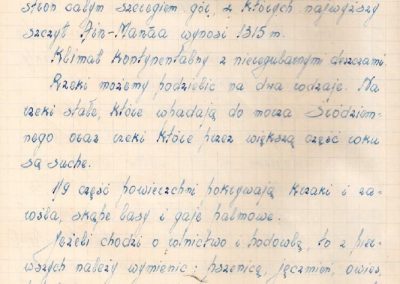 stron całym szeregiem gór, z których najwyższy
szczyt Ain-Mansa wynosi 1315 m.
Klimat kontynentalny z nieregularnym deszczami.
Rzeki możemy podzielić na dwa rodzaje. Na
rzeki stałe, które wpadają do morza Śródziem-
nego oraz rzeki które przez większą część roku
są suche.
1/9 część powierzchni pokrywają krzaki i za-
rośla, skąpe lasy i gaje palmowe.
Jeżeli chodzi o rolnictwo i hodowlę, to z pier-
wszych należy wymienić: pszenicę, jęczmień, owies,